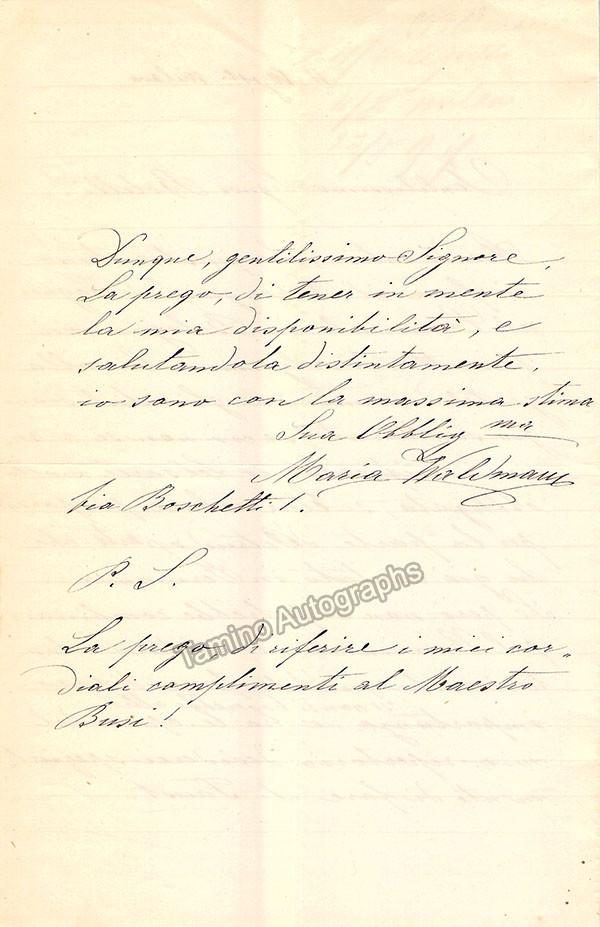 Dunque, gentilissimo Signore,
La prego, di tener in mente
la mia disponibilità, e
salutandola distintamente,
io sono con la massima stima
Sua Obblig ma
Maria Waldmann
Via Boschetti 1.
P. S.
Tamino Autographs
La prego di riferire i miei cor„
diali complimenti al Maestro
Busi!